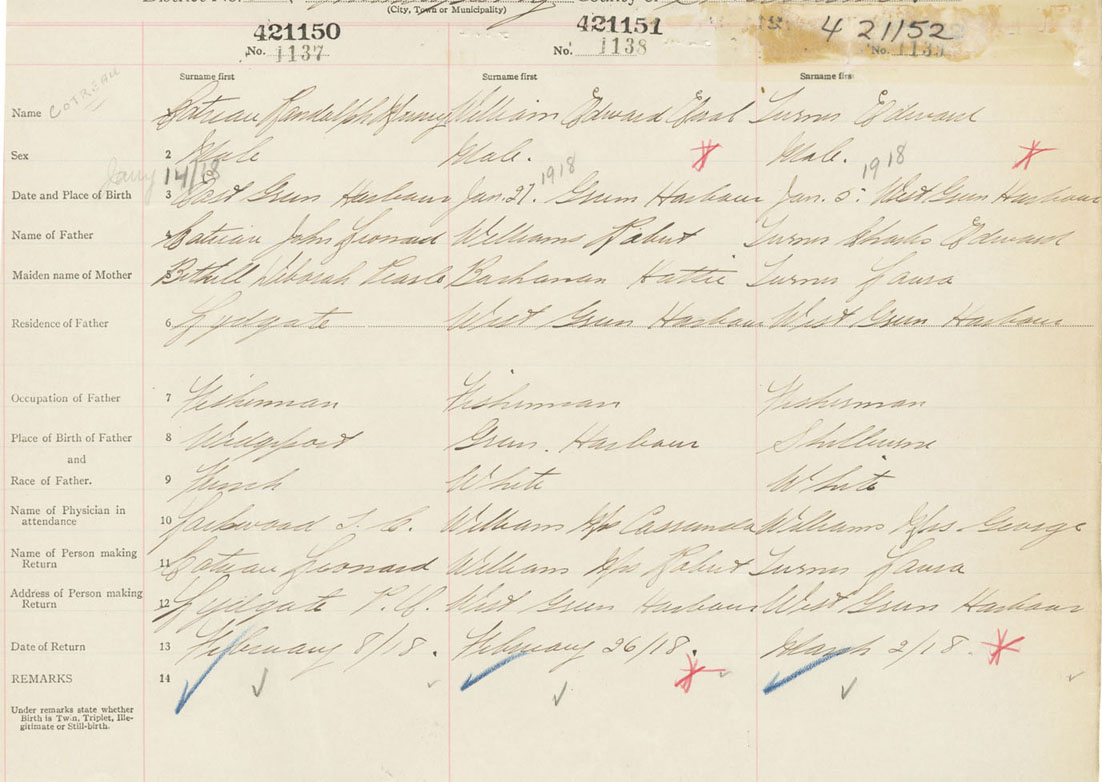 (City, Town or Municipality)
421150 421151 4 21152
No. 1137 No. 1138 No.
Surname first Surname first Surname first
COTREAU
Name Randolph William Edward Turner Edward
Sex 2 Male Male. Male.
14/18 1918 1918
Date and Place of Birth 3 East Green Harbour Jan. 27. Green Harbour Jan. 5. West Green Harbour
Name of Father John Leonard Williams Robert Turner Charles Edward
Maiden name of Mother 5 Bethell Deborah Pearle Buchanan Hattie Turner Laura
Residence of Father 6 Lydgate West Green Harbour West Green Harbour
Occupation of Father 7 Fisherman Fisherman Fisherman
Place of Birth of Father 8 Wedgeport Green Harbour Shelburne
and
Race of Father. 9 French White White
Name of Physician in
attendance 10 Lockwood T. C. William Mrs Cassanda Williams Mrs. George
Name of Person making
Return 11 Leonard William Mrs Robert Turner Laura
Address of Person making
Return 12 Lydgate West Green Harbour West Green Harbour
Date of Return 13 February 8/18. February 26/18. March 2/18
REMARKS 14
Under remarks state whether
Birth is Twin, Triplet, Ille-
gitimate or Still-birth.